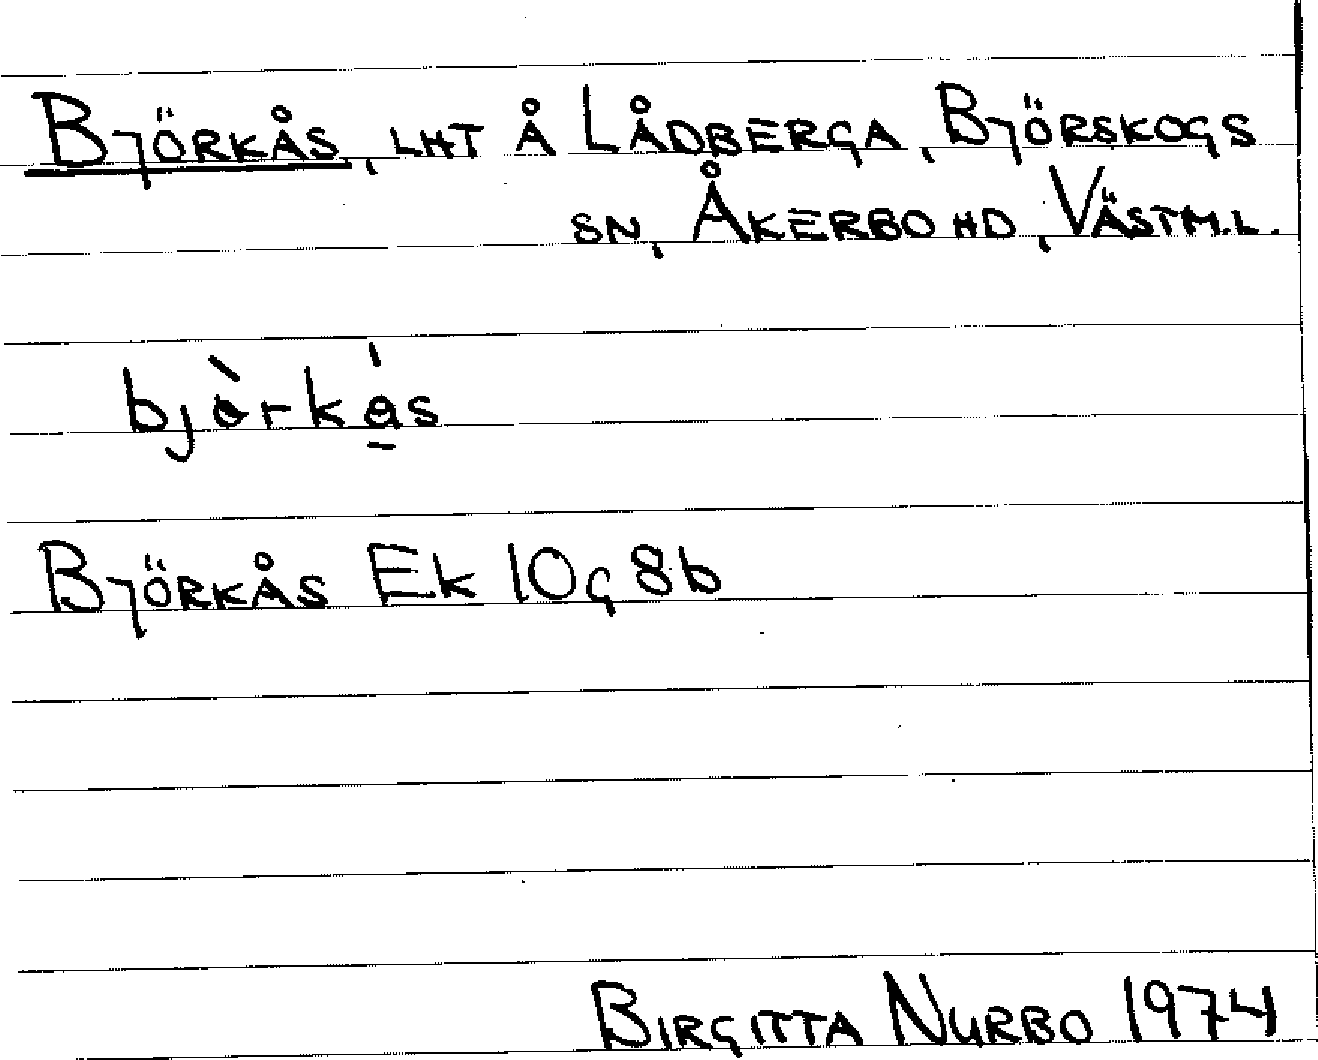 BJÖRKÅS, LHT Å LÅDBERGA, BJÖRSKOGS
SN, ÅKERBO HD, VÄSTM.L.
bjòrkás
BJÖRKÅS Ek 10G 8b
BIRGITTA NURBO 1974